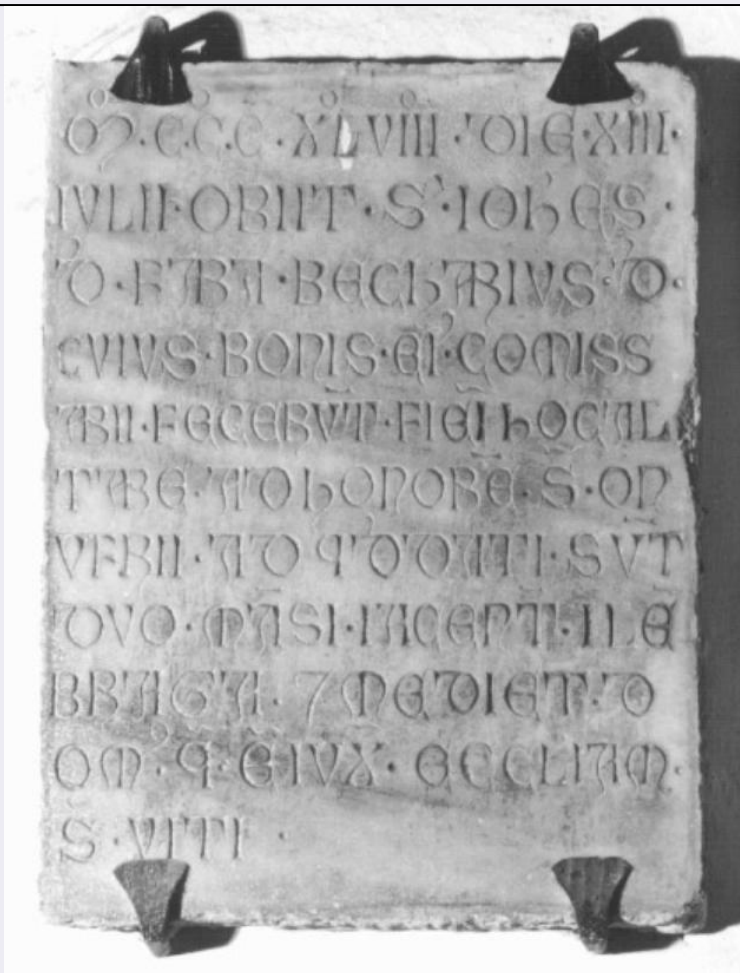 M·C·C·C·XLVIII·DIE·XIII·
IVLII·OBIIT·S'·IOHES·
D'·FABA·BECHARIVS·D'·
CVIVS·BONIS·EI'·COMISS
ARII·FECERVT·FIEI HOC·AL
TARE·AD HONORE·S·ON
VFRII·AD Q'D DATI·SVT
DVO·MASI·IACENT·I LE
BRAGA·7 MEDIET·D
OM'·Q·E IVX·ECCLIAM·
S·VITI·